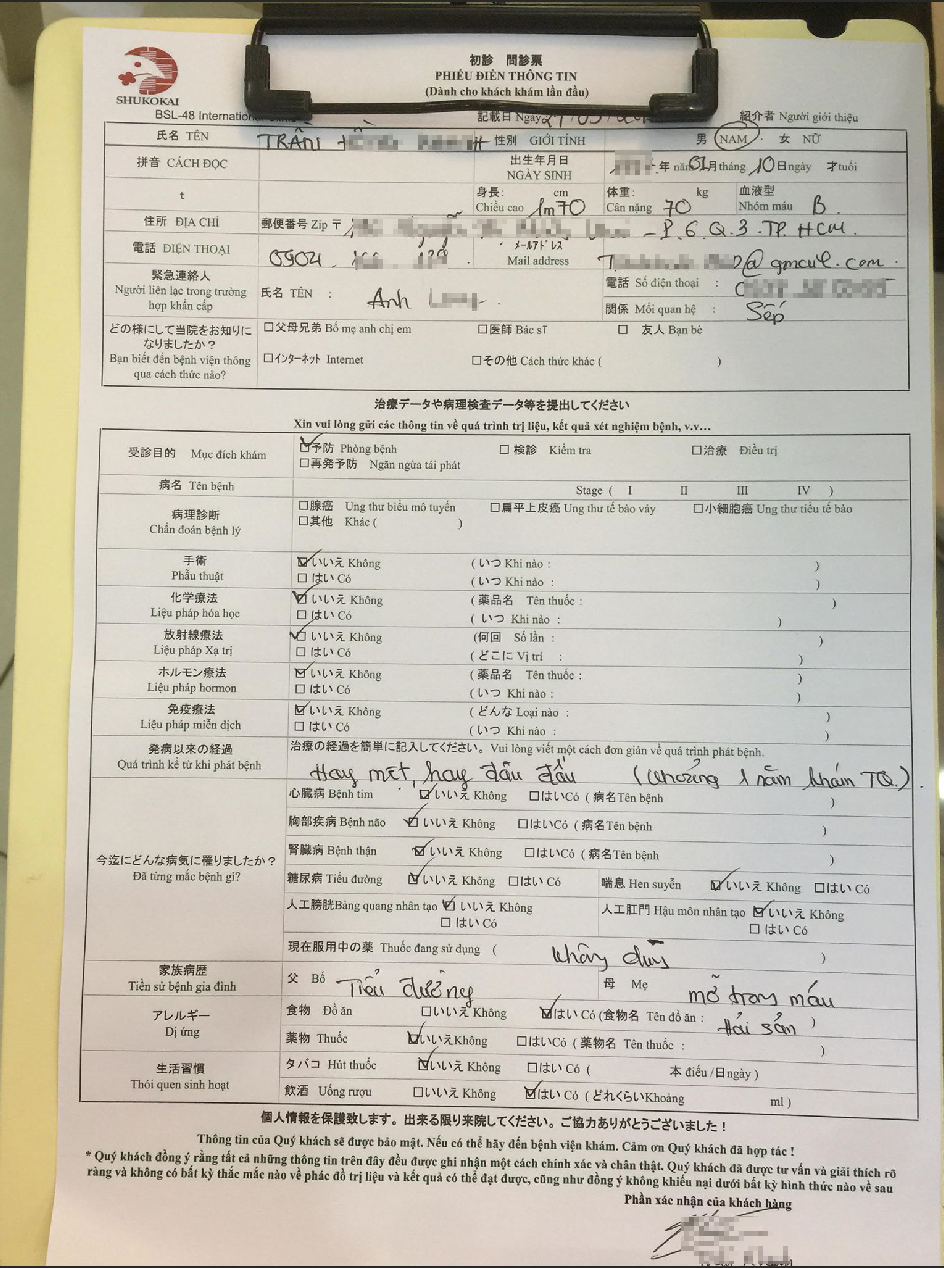 SHUKOKAI
BSL-48 International
初診 問診票
PHIẾU ĐIỀN THÔNG TIN
(Dành cho khách khám lần đầu)
記載日 Ngày
紹介者 Người giới thiệu
氏名 TÊN TRẦN 性別 GIỚI TÍNH 男 NAM 女 NỮ
拼音 CÁCH ĐỌC 出生年月日 NGÀY SINH 年 năm 01 月 tháng 10 日 ngày 才 tuổi
t 身長: Chiều cao 1m70 cm 体重: Cân nặng 70 kg 血液型 Nhóm máu B
住所 ĐỊA CHỈ 郵便番号 Zip 〒 - P.6.Q.3.TP.HCM.
電話 ĐIỆN THOẠI 0904 メールアドレス Mail address @gmail.com
緊急連絡人
Người liên lạc trong trường hợp khẩn cấp
氏名 TÊN : Anh
電話 Số điện thoại :
関係 Mối quan hệ : Sếp
どの様にして当院をお知りになりましたか?
Bạn biết đến bệnh viện thông qua cách thức nào?
☐父母兄弟 Bố mẹ anh chị em ☐医師 Bác sT ☐ 友人 Bạn bè
☐インターネット Internet ☐その他 Cách thức khác ( )
治療データや病理検査データ等を提出してください
Xin vui lòng gửi các thông tin về quá trình trị liệu, kết quả xét nghiệm bệnh, v.v…
受診目的 Mục đích khám ☑予防 Phòng bệnh ☐ 検診 Kiểm tra ☐治療 Điều trị
☐再発予防 Ngăn ngừa tái phát
病名 Tên bệnh Stage ( I II III IV )
病理診断
Chẩn đoán bệnh lý
☐腺癌 Ung thư biểu mô tuyến ☐扁平上皮癌 Ung thư tế bào vảy ☐小細胞癌 Ung thư tiểu tế bào
☐其他 Khác ( )
手術 ☑いいえ Không ( いつ Khi nào : )
Phẫu thuật ☐ はい Có ( いつ Khi nào : )
化学療法 ☑いいえ Không ( 薬品名 Tên thuốc : )
Liệu pháp hóa học ☐ はい Có ( いつ Khi nào : )
放射線療法 ☑いいえ Không (何回 Số lần : )
Liệu pháp Xạ trị ☐ はい Có ( どこに Vị trí : )
ホルモン療法 ☑いいえ Không ( 薬品名 Tên thuốc : )
Liệu pháp hormon ☐はい Có ( いつ Khi nào : )
免疫療法 ☑いいえ Không ( どんな Loại nào : )
Liệu pháp miễn dịch ☐ はい Có ( いつ Khi nào : )
発病以来の経過
Quá trình kể từ khi phát bệnh
治療の経過を簡単に記入してください。Vui lòng viết một cách đơn giản về quá trình phát bệnh.
Hay mệt, hay đau đầu (khoảng 1 năm khám TQ).
今迄にどんな病気に罹りましたか?
Đã từng mắc bệnh gì?
心臓病 Bệnh tim ☑いいえ Không ☐はい Có ( 病名Tên bệnh )
胸部疾病 Bệnh não ☑いいえ Không ☐はい Có ( 病名Tên bệnh )
腎臓病 Bệnh thận ☑いいえ Không ☐はい Có ( 病名Tên bệnh )
糖尿病 Tiểu đường ☑いいえ Không ☐はい Có 喘息 Hen suyễn ☑いいえ Không ☐はい Có
人工膀胱Bàng quang nhân tạo ☑いいえ Không 人工肛門 Hậu môn nhân tạo ☑いいえ Không
☐はい Có ☐はい Có
現在服用中の薬 Thuốc đang sử dụng ( không dùng )
家族病歴
Tiền sử bệnh gia đình
父 Bố Tiểu đường 母 Mẹ mỡ trong máu
アレルギー
Dị ứng
食物 Đồ ăn ☐いいえ Không ☑はい Có (食物名 Tên đồ ăn : Hải sản )
薬物 Thuốc ☑いいえKhông ☐はいCó ( 薬物名 Tên thuốc : )
生活習慣
Thói quen sinh hoạt
タバコ Hút thuốc ☑いいえ Không ☐はい Có ( 本 điếu /日ngày )
飲酒 Uống rượu ☐いいえ Không ☑はい Có ( どれくらいKhoảng ml )
個人情報を保護致します。出来る限り来院してください。ご協力ありがとうございました!
Thông tin của Quý khách sẽ được bảo mật. Nếu có thể hãy đến bệnh viện khám. Cảm ơn Quý khách đã hợp tác !
* Quý khách đồng ý rằng tất cả những thông tin trên đây đều được ghi nhận một cách chính xác và chân thật. Quý khách đã được tư vấn và giải thích rõ
ràng và không có bất kỳ thắc mắc nào về phác đồ trị liệu và kết quả có thể đạt được, cũng như đồng ý không khiếu nại dưới bất kỳ hình thức nào về sau
Phần xác nhận của khách hàng